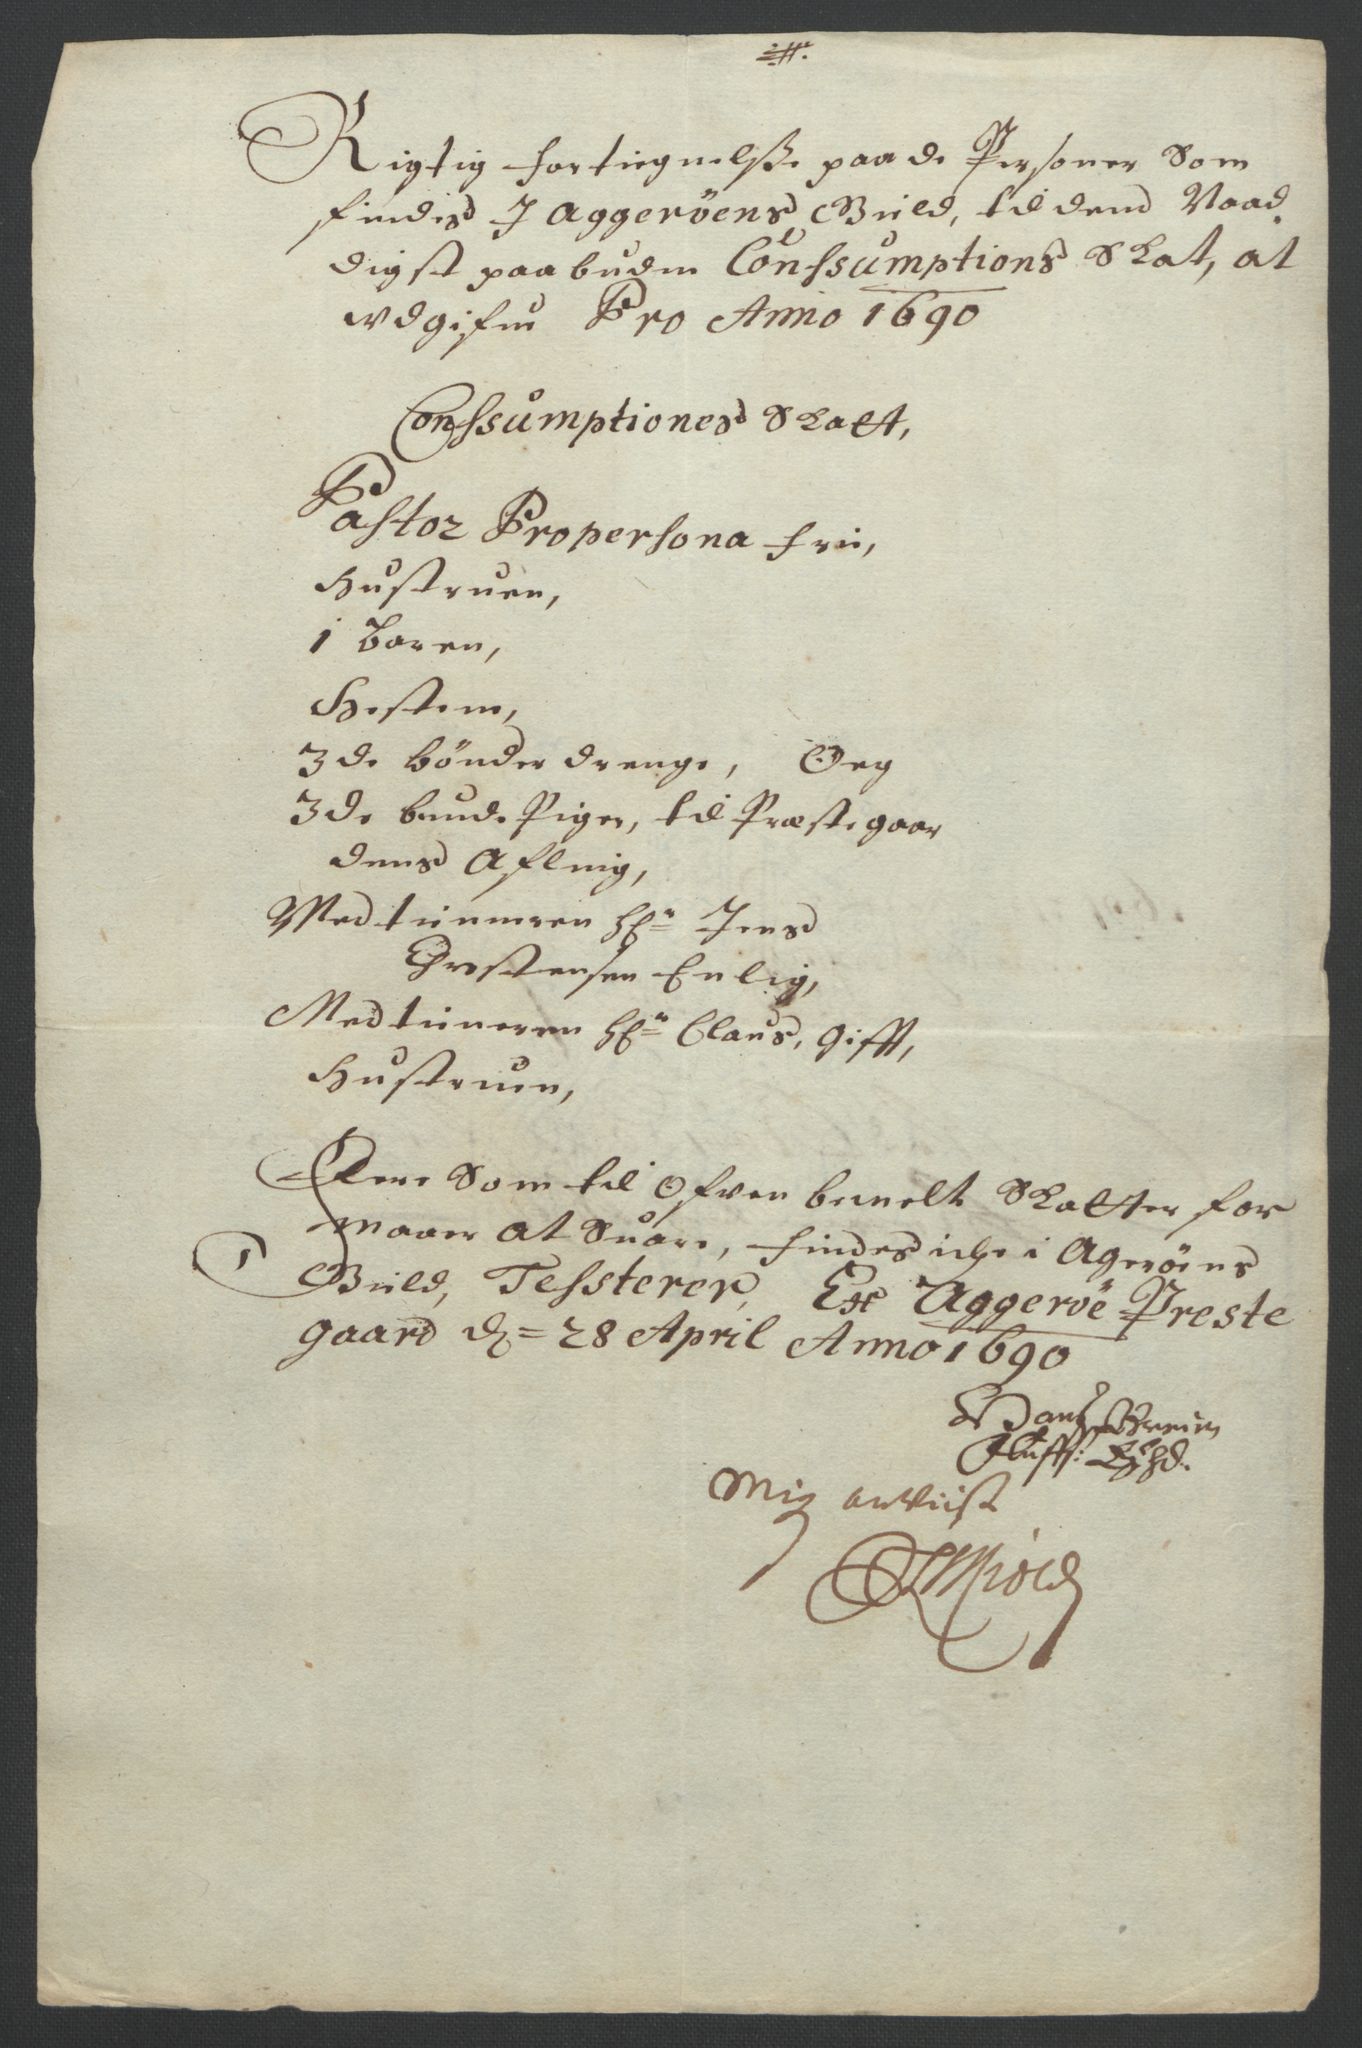 Rigtig fortiegnelsse paa de Personer Som
findis J Aggeröens Gield, til dend Naad
digst paabuden Conssumptions Skat, at
udgifue Pro Anno 1690
Conssumptiones Skatt,
Pastor Propersona frii,
Hustruen,
1 Baren,
Hesten,
3de bönder drenge, Oeg
3de bunde Piger, til Præstegaar
dens Afling,
Medtienneren Hr Jens
Christensen Enlig,
Medtieneren Hr Claus, gifft,
Hustruen,
Flere Som til Ofven bemelt Skatter for
maaer at Suare, findes iche i Ageröens
Gield, Tessterer, Ex Aggeröe Preste
gaard d = 28 April Anno 1690
Mig anviist